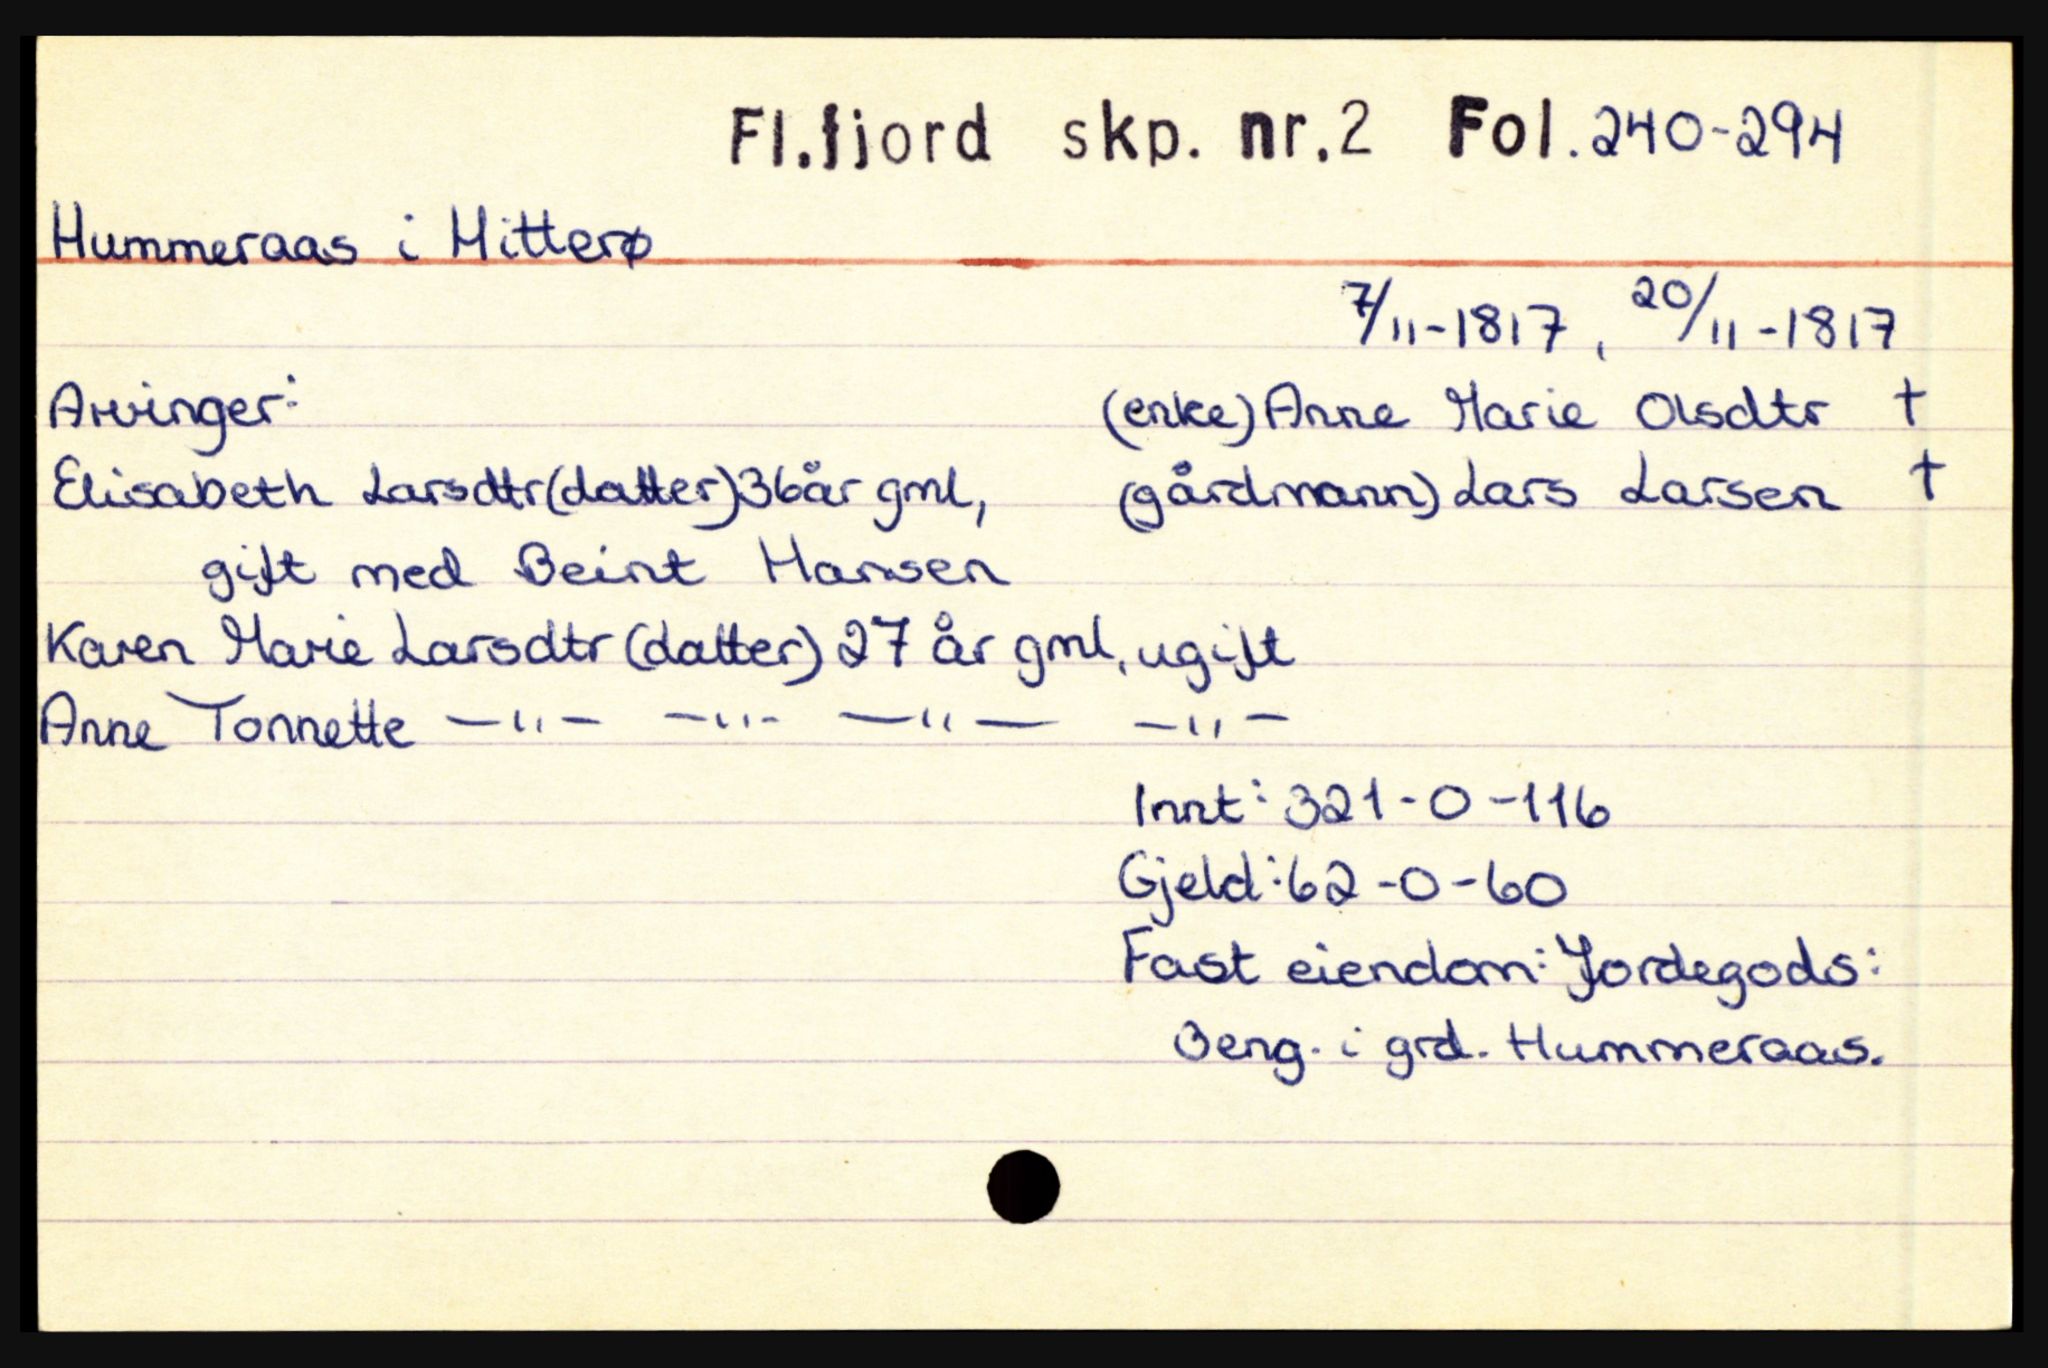 Fl.fjord skp. nr.2 Fol.240-294
Hummeraas i Hitterø
7/11-1817, 20/11-1817
Arvinger: (enke) Anne Marie Olsdtr †
Elisabeth Larsdtr (datter) 36 år gml, (gårdmann) Lars Larsen †
gift med Beint Hansen
Karen Marie Larsdtr (datter) 27 år gml, ugift
Anne Tonnette —"— —"— —"— —"—
Innt: 321-0-116
Gjeld: 62-0-60
Fast eiendom: Jordegods:
Beng. i grd. Hummeraas.